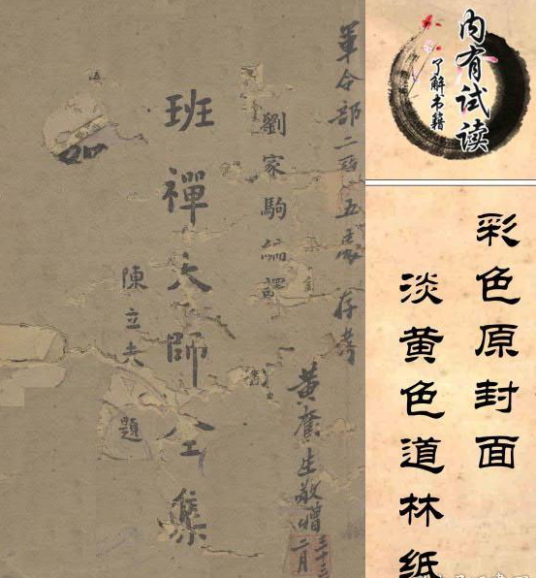 軍令部二廳五處存考
劉家駒編譯
班禪大師全集
陳立夫題
黃奮生敬贈
二月
内有试读
了解书籍
彩色原封面
淡黄色道林纸